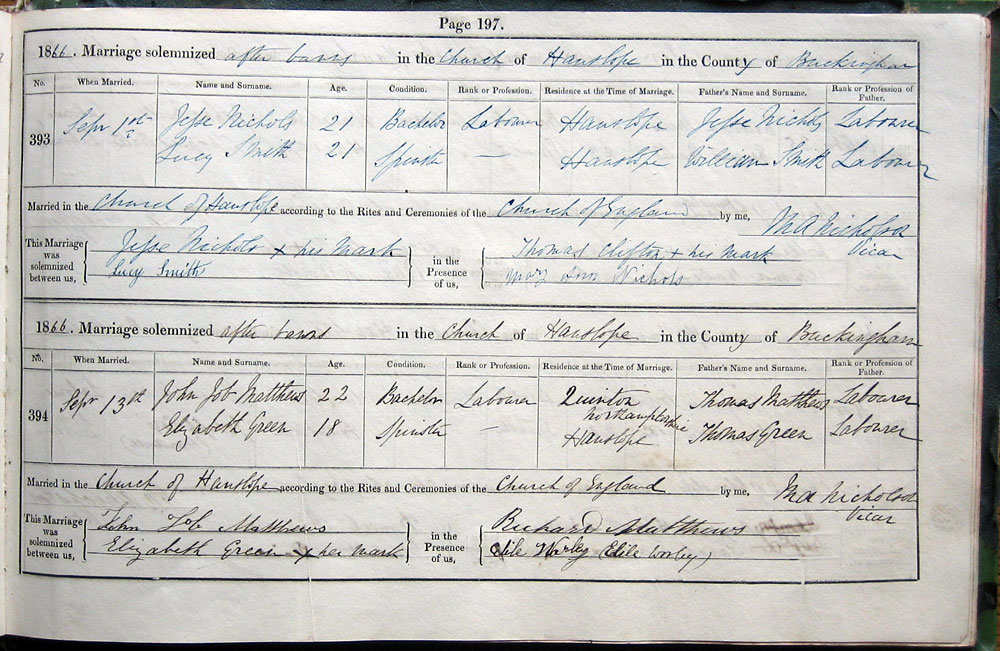 Page 197.
1866. Marriage solemnized after banns in the Church of Hanslope in the County of Buckingham
No. When Married. Name and Surname. Age. Condition. Rank or Profession. Residence at the Time of Marriage. Father's Name and Surname. Rank or Profession of Father.
393 Sepr 1st Jesse Nichols 21 Bachelor Labourer Hanslope Jesse Nichols Labourer
Lucy Smith 21 Spinster — Hanslope William Smith Labourer
Married in the Church of Hanslope according to the Rites and Ceremonies of the Church of England by me, M A Nicholson
Vicar
This Marriage was solemnized between us, Jesse Nichols x his mark in the Presence of us, Thomas Clifton x his mark
Lucy Smith Mary Ann Nichols
1866. Marriage solemnized after banns in the Church of Hanslope in the County of Buckingham
No. When Married. Name and Surname. Age. Condition. Rank or Profession. Residence at the Time of Marriage. Father's Name and Surname. Rank or Profession of Father.
394 Sepr 13th John Job Matthews 22 Bachelor Labourer Quinton Northamptonshire Thomas Matthews Labourer
Elizabeth Green 18 Spinster — Hanslope Thomas Green Labourer
Married in the Church of Hanslope according to the Rites and Ceremonies of the Church of England by me, M A Nicholson
Vicar
This Marriage was solemnized between us, John Job Matthews in the Presence of us, Richard Matthews
Elizabeth Green x her mark Worley Worley)